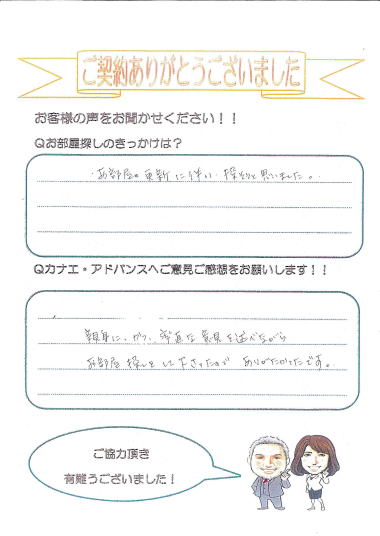 ご契約ありがとうございました
お客様の声をお聞かせください！！
Qお部屋探しのきっかけは？
お部屋の更新に伴い、探そうと思いました。
Qカナエ・アドバンスへご意見ご感想をお願いします！！
親身に、かつ、率直な意見を述べながら
お部屋探しをして下さったので ありがたかったです。
ご協力頂き
有難うございました！